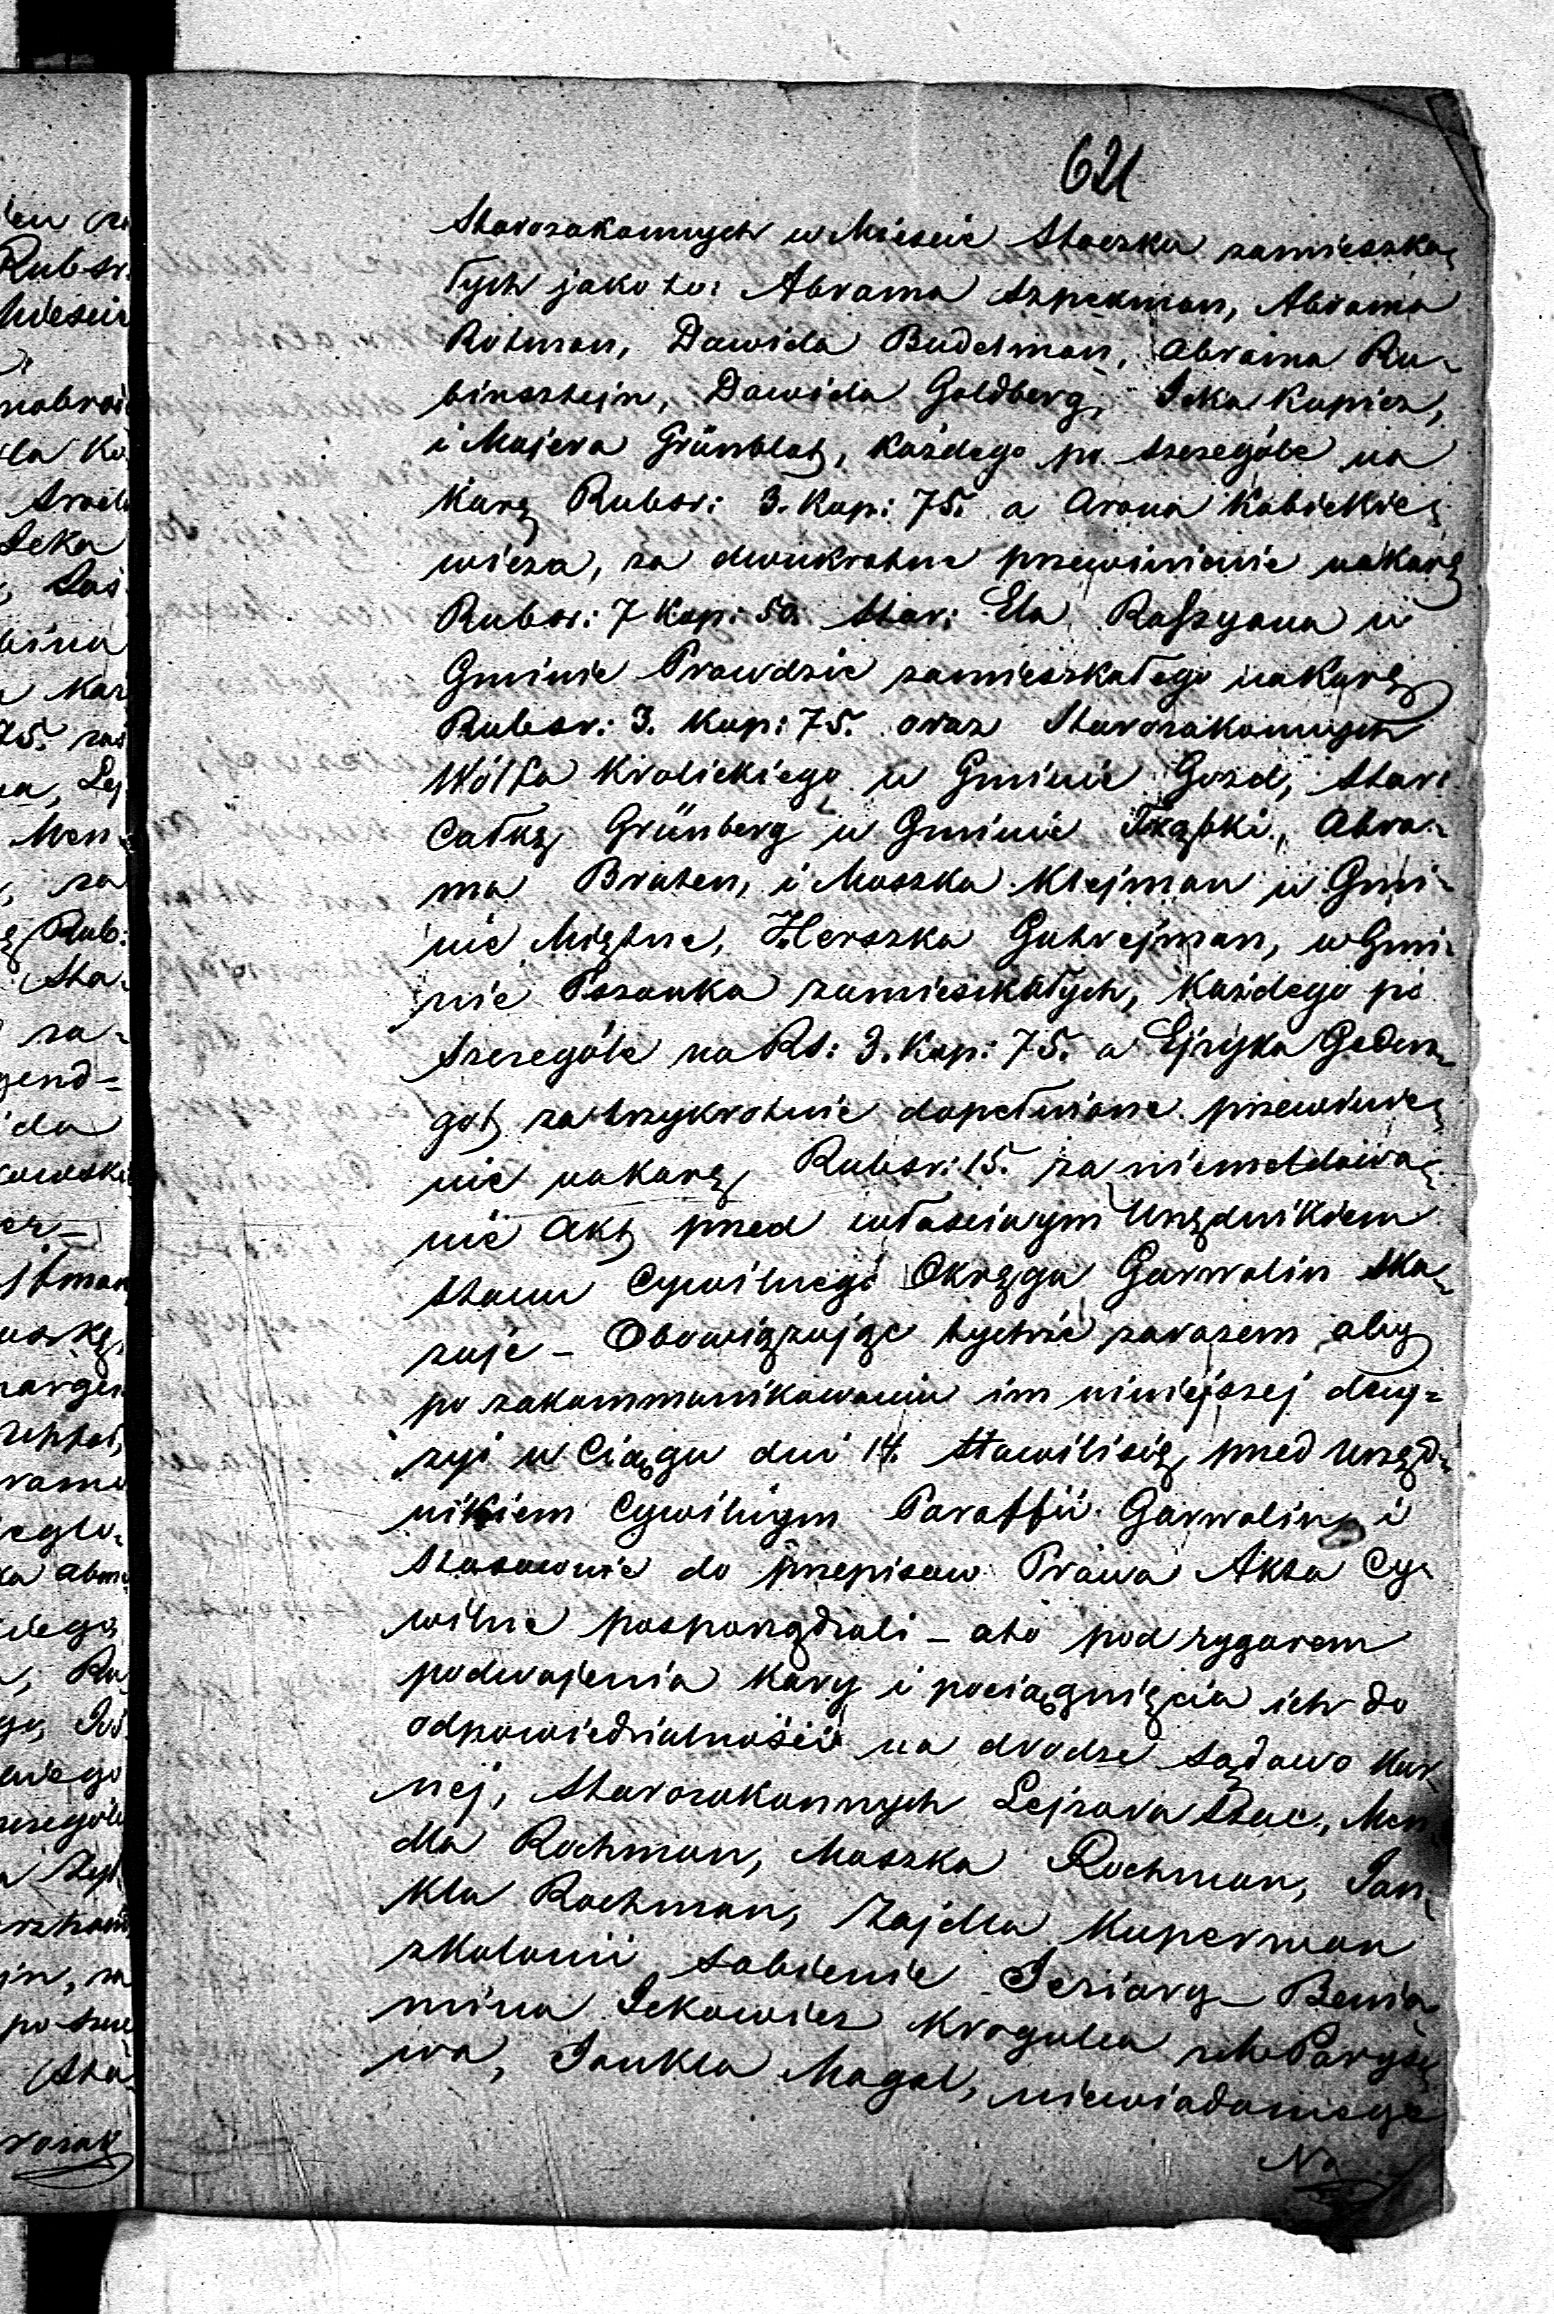 621
Starozakonnych w Mieście Stoczku zamieszka-
łych jako to: Abrama Szpekman, Abrama
Rotman, Dawida Budelman, Abrama Ru-
binsztejn, Dawida Goldberg, Icka Kupiec,
i Majera Grünblat, każdego po szczególe na
karę Rubsr: 3. Kop: 75. a Arona Kobickie-
wicza, za dwukrotne przewinienie na karę
Rubsr: 7 Kop: 50. Star: Ela Raszyana w
Gminie Prawdzie zamieszkałego na karę
Rubsr: 3. Kop: 75. oraz Starozakonnych
Wólfa Krolickiego w Gminie Gozd, Star:
Całkę Grünberg w Gminie Trąbki, Abra-
ma Braten, i Moszka Klejman w Gmi-
nie Miętne, Herszka Gutrejman, w Gmi-
nie Pszonka zamieszkałych, każdego po
szczególe na Rs: 3. Kop: 75. a Ejzyka Gedun-
got za trzykrotnie dopełnione przewinie-
nie na karę Rubsr: 15. za niemeldowa-
nie Akt przed właściwym Urzędnikiem
Stanu Cywilnego Okręgu Garwolin ska-
zuje – Obowiązując tychże zarazem aby
po zakommunikowaniu im niniejszej decy-
zyi w Ciągu dni 14. stawili się przed Urzęd-
nikiem Cywilnym Paraffii Garwolin i
stosownie do przepisow Prawa Akta Cy-
wilne posporządzali – ato pod rygorem
podwojenia kary i pociągnięcia ich do
odpowiedzialności na drodze sądowo kar-
nej, Starozakonnych Lejzora Stac, Men-
dla Rochman, Moszka Rochman, Jan-
kla Rochman, Zajdla Kuperman
z kolonii Sobienie Jeziory – Benia-
mina Ickowicz Krogulca z Paryso-
wa, Jankla Magal, niewiadomego
Na